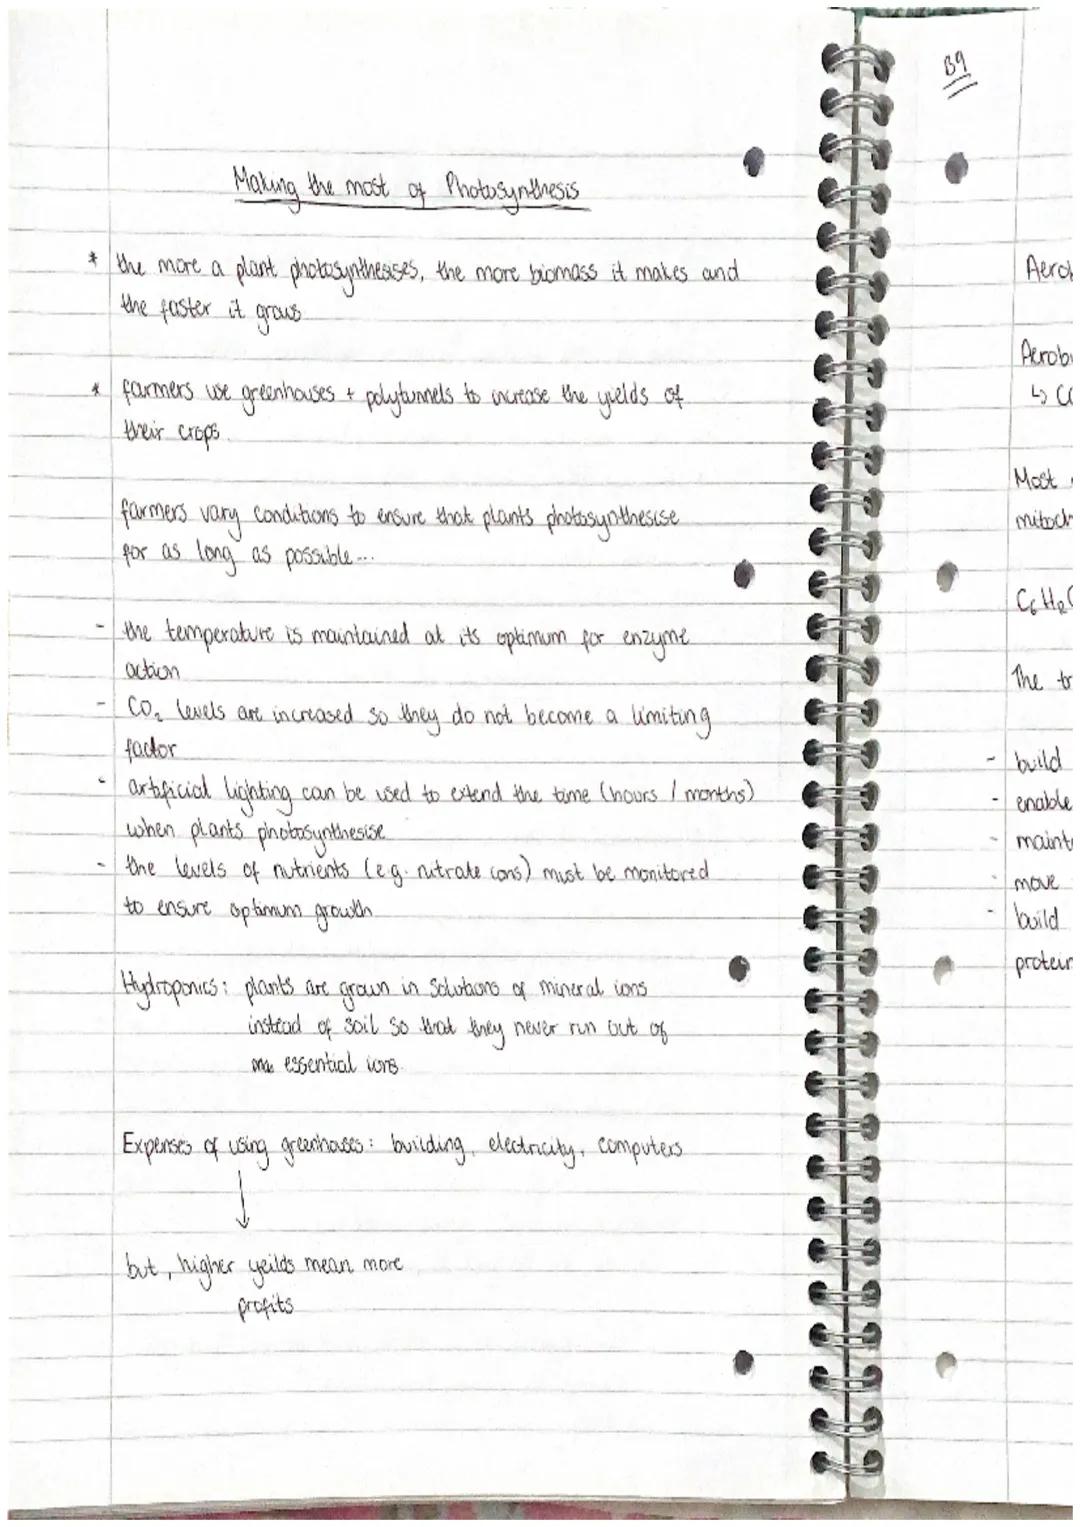 Making the most of Photosynthesis
* the more a plant photosynthesises, the more biomass it makes and
the faster it grows
* farmers use greenhouses + polytunnels to increase the yields of
their crops.
farmers vary conditions to ensure that plants photosynthesise
for as long as possible...
- the temperature is maintained at its optimum for enzyme
action
- CO₂ levels are increased so they do not become a limiting
factor
- artificial lighting can be used to extend the time (hours / months)
when plants photosynthesise
- the levels of nutrients (e.g. nitrate ions) must be monitored
to ensure optimum growth
Hydroponics: plants are grown in solutions of mineral ions
instead of soil so that they never run out of
essential ions.
Expenses of using greenhouses: building, electricity, computers
↓
but, higher yeilds mean more
profits
B9
Aerob
Aerobi
↳ CO
Most
mitoch
C₆H₁₂O
The tr
- build
- enable
- mainta
- move
- build
protein